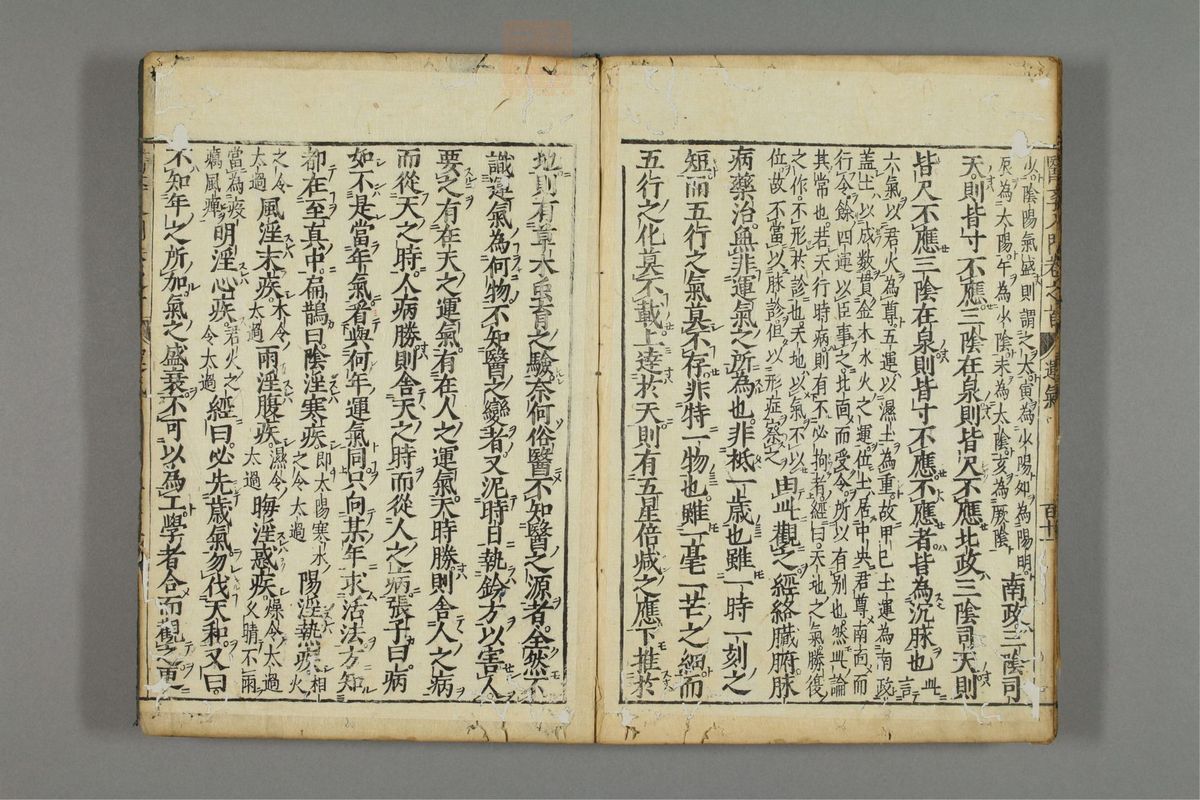 醫學入門卷之首 運氣 百十一
少陰陽氣盛則謂之大寅為少陽如為陽明
辰為太陽午為少陰未為太陰亥為厥陰 南政三陰司
天則皆寸不應三陰在泉則皆尺不應北政三陰司天則
皆尺不應三陰在泉則皆寸不應不應者皆為沉脉也 此言
六氣以君火為尊五運以濕土為重故甲己土運為南政
盖土以成数貫金木水火之運位土居中央君尊南面而
行令餘四運以臣事之北面而受令所以有别也然此論
其常也若天行時病則有不必拘者經曰天地之氣勝復
之作不形於診也天地以氣不以
位故不當以脉診但以形症察之 由此觀之經絡臟腑脉
病藥治無非運氣之所為也非秪一歳也雖一時一刻之
短而五行之氣莫不存非特一物也雖一毫一芒之細而
五行之化莫不載上達於天則有五星倍减之應下推於
地則有草木虫育之驗奈何俗醫不知醫之源者全然不
識運氣為何物不知醫之變者又泥時日執鈐方以害人
要之有在天之運氣有在人之運氣天時勝則舍人之病
而從天之時人病勝則舍天之時而從人之病張子曰病
如不是當年氣看與何年運氣同只向某年求活法方知
都在至真中扁鵲曰陰淫寒疾 即太陽寒水之令太過 陽淫熱疾 相火
之令太過 風淫末疾 木令太過 雨淫腹疾 濕令太過 晦淫惑疾 燥令太過久晴不雨
當為疫癘風痺 明淫心疾 君火之令太過 經曰必先歳氣勿伐天和又曰
不知年之所加氣之盛衰不可以為工學者合而觀之更